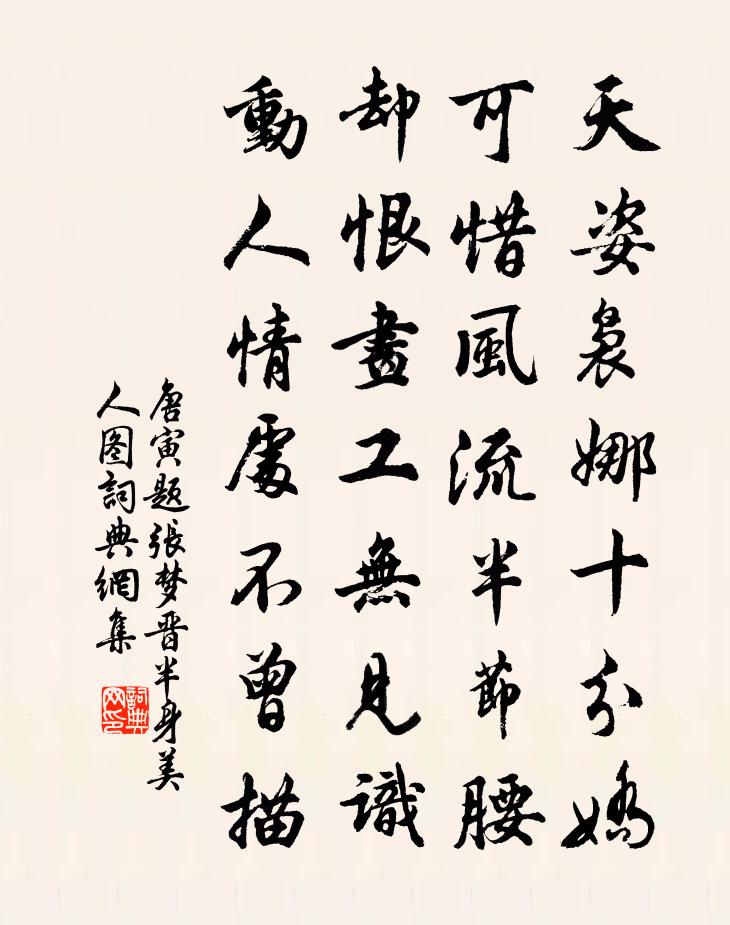 天姿裊娜十分嬌
可惜風流半節腰
却恨畫工無見識
動人情處不曾描
唐寅题張梦晋半身美
人图詞典網集
詞典网印